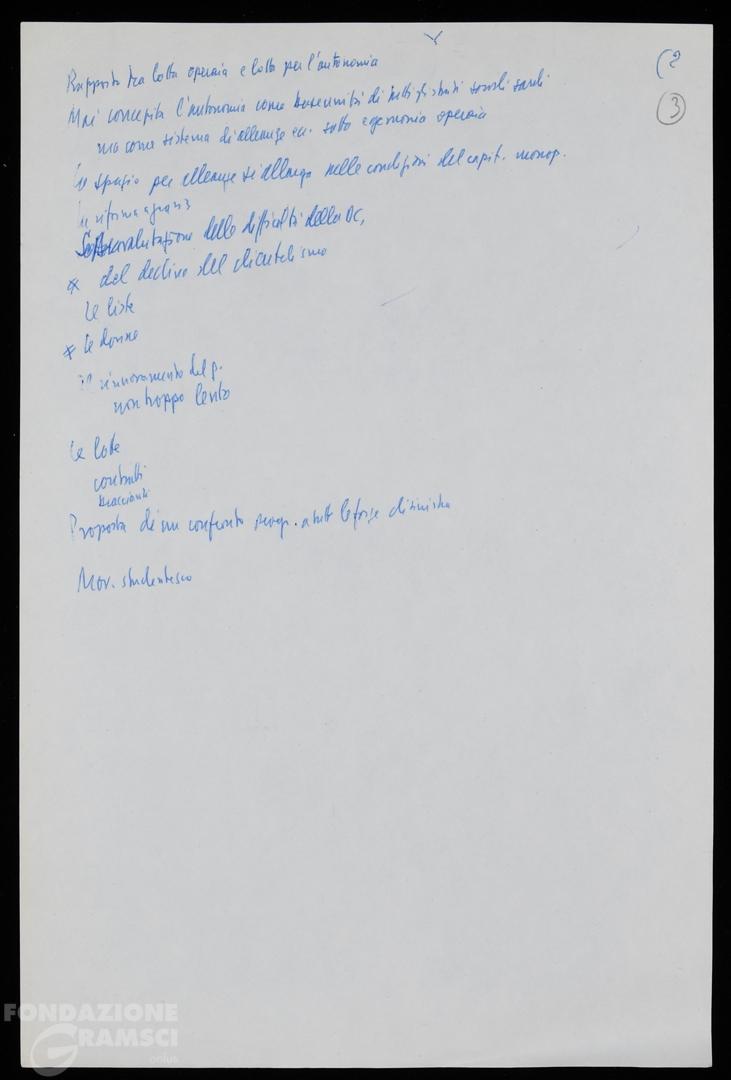 (2
3
Rapporto tra lotta operaia e lotta per l'autonomia
Mai concepita l'autonomia come di tutti gli strati sociali sardi
ma come sistema di alleanze ecc. sotto egemonia operaia
Lo spazio per alleanze si allarga nelle condizioni del capit. monop.
La riforma agraria
Sottovalutazione delle difficoltà della DC,
* del declino del clientelismo
Le liste
* Le donne
Il rinnovamento del p.
non troppo lento
Le lotte
contratti
braccianti
Proposta di un confronto progr. a tutte le forze di sinistra
Mov. studentesco
FONDAZIONE
GRAMSCI
onlus